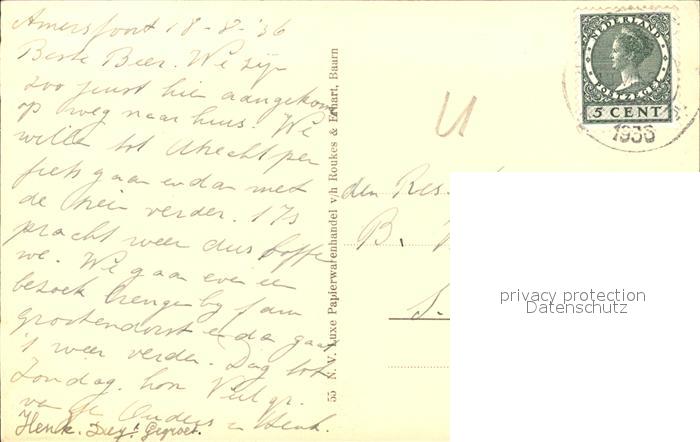 Amersfoort 18-8-'36
Beste Beer. We zijn
zoo juist hier aangekom
op weg naar huis. We
willen tot Utrecht per
fiets gaan en dan met
de trein verder. 't Is
pracht weer dus boffe
we. We gaan even een
bezoek brengen bij fam
Grootendorst en dan gaat
't weer verder. Dag tot
Zondag. hoor Veel gr.
van de Ouders en Henk.
Henk. Dag! Gegroet.
55 N. V. Luxe Papierwarenhandel v/h Roukes & Erhart, Baarn
NEDERLAND
POSTZEGEL
5 CENT
1936
den
B.
S.
privacy protection
Datenschutz